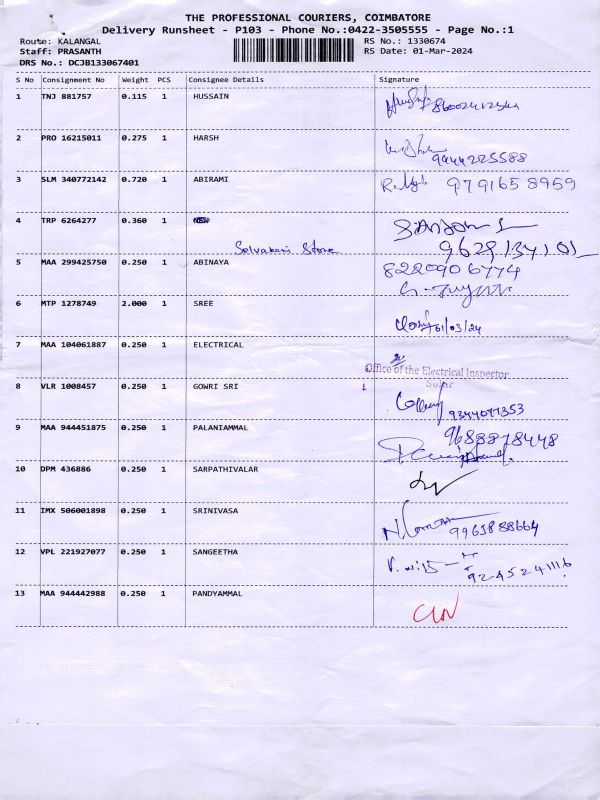 THE PROFESSIONAL COURIERS, COIMBATORE
Delivery Runsheet - P103 - Phone No.:0422-3505555 - Page No.:1
Route: KALANGAL RS No.: 1330674
Staff: PRASANTH RS Date: 01-Mar-2024
DRS No.: DCJB133067401
S No Consignment No Weight PCS Consignee Details Signature
1 TNJ 881757 0.115 1 HUSSAIN
2 PRO 16215011 0.275 1 HARSH
9444225588
3 SLM 340772142 0.720 1 ABIRAMI 9791658959
4 TRP 6264277 0.360 1
Selvakani Store
5 MAA 299425750 0.250 1 ABINAYA 8220906774
6 MTP 1278749 2.000 1 SREE
01/03/24
7 MAA 104061887 0.250 1 ELECTRICAL
Office of the Electrical Inspector
8 VLR 1008457 0.250 1 GOWRI SRI
9344077353
9 MAA 944451875 0.250 1 PALANIAMMAL 9688878448
10 DPM 436886 0.250 1 SARPATHIVALAR
11 IMX 506001898 0.250 1 SRINIVASA
9965888664
12 VPL 221927077 0.250 1 SANGEETHA
9245241116
13 MAA 944442988 0.250 1 PANDYAMMAL